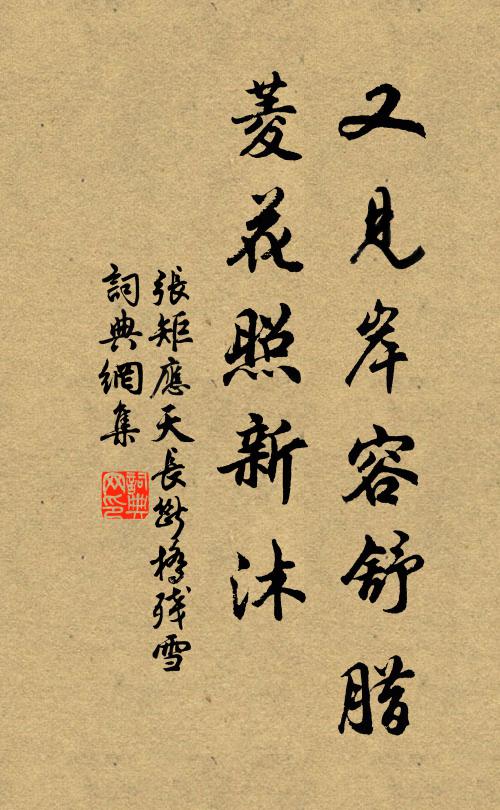 又見岸容舒腊
菱花照新沐
張矩應天長斷橋殘雪
詞典網集
詞典網印